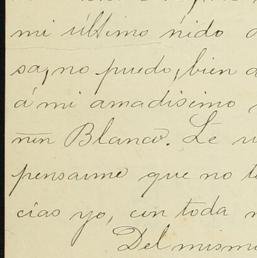 mi último nido
sa, no puedo, bien
á mi amadisimo
nín Blanco. Le
pensarme que no
cías yo, con toda
Del mismo